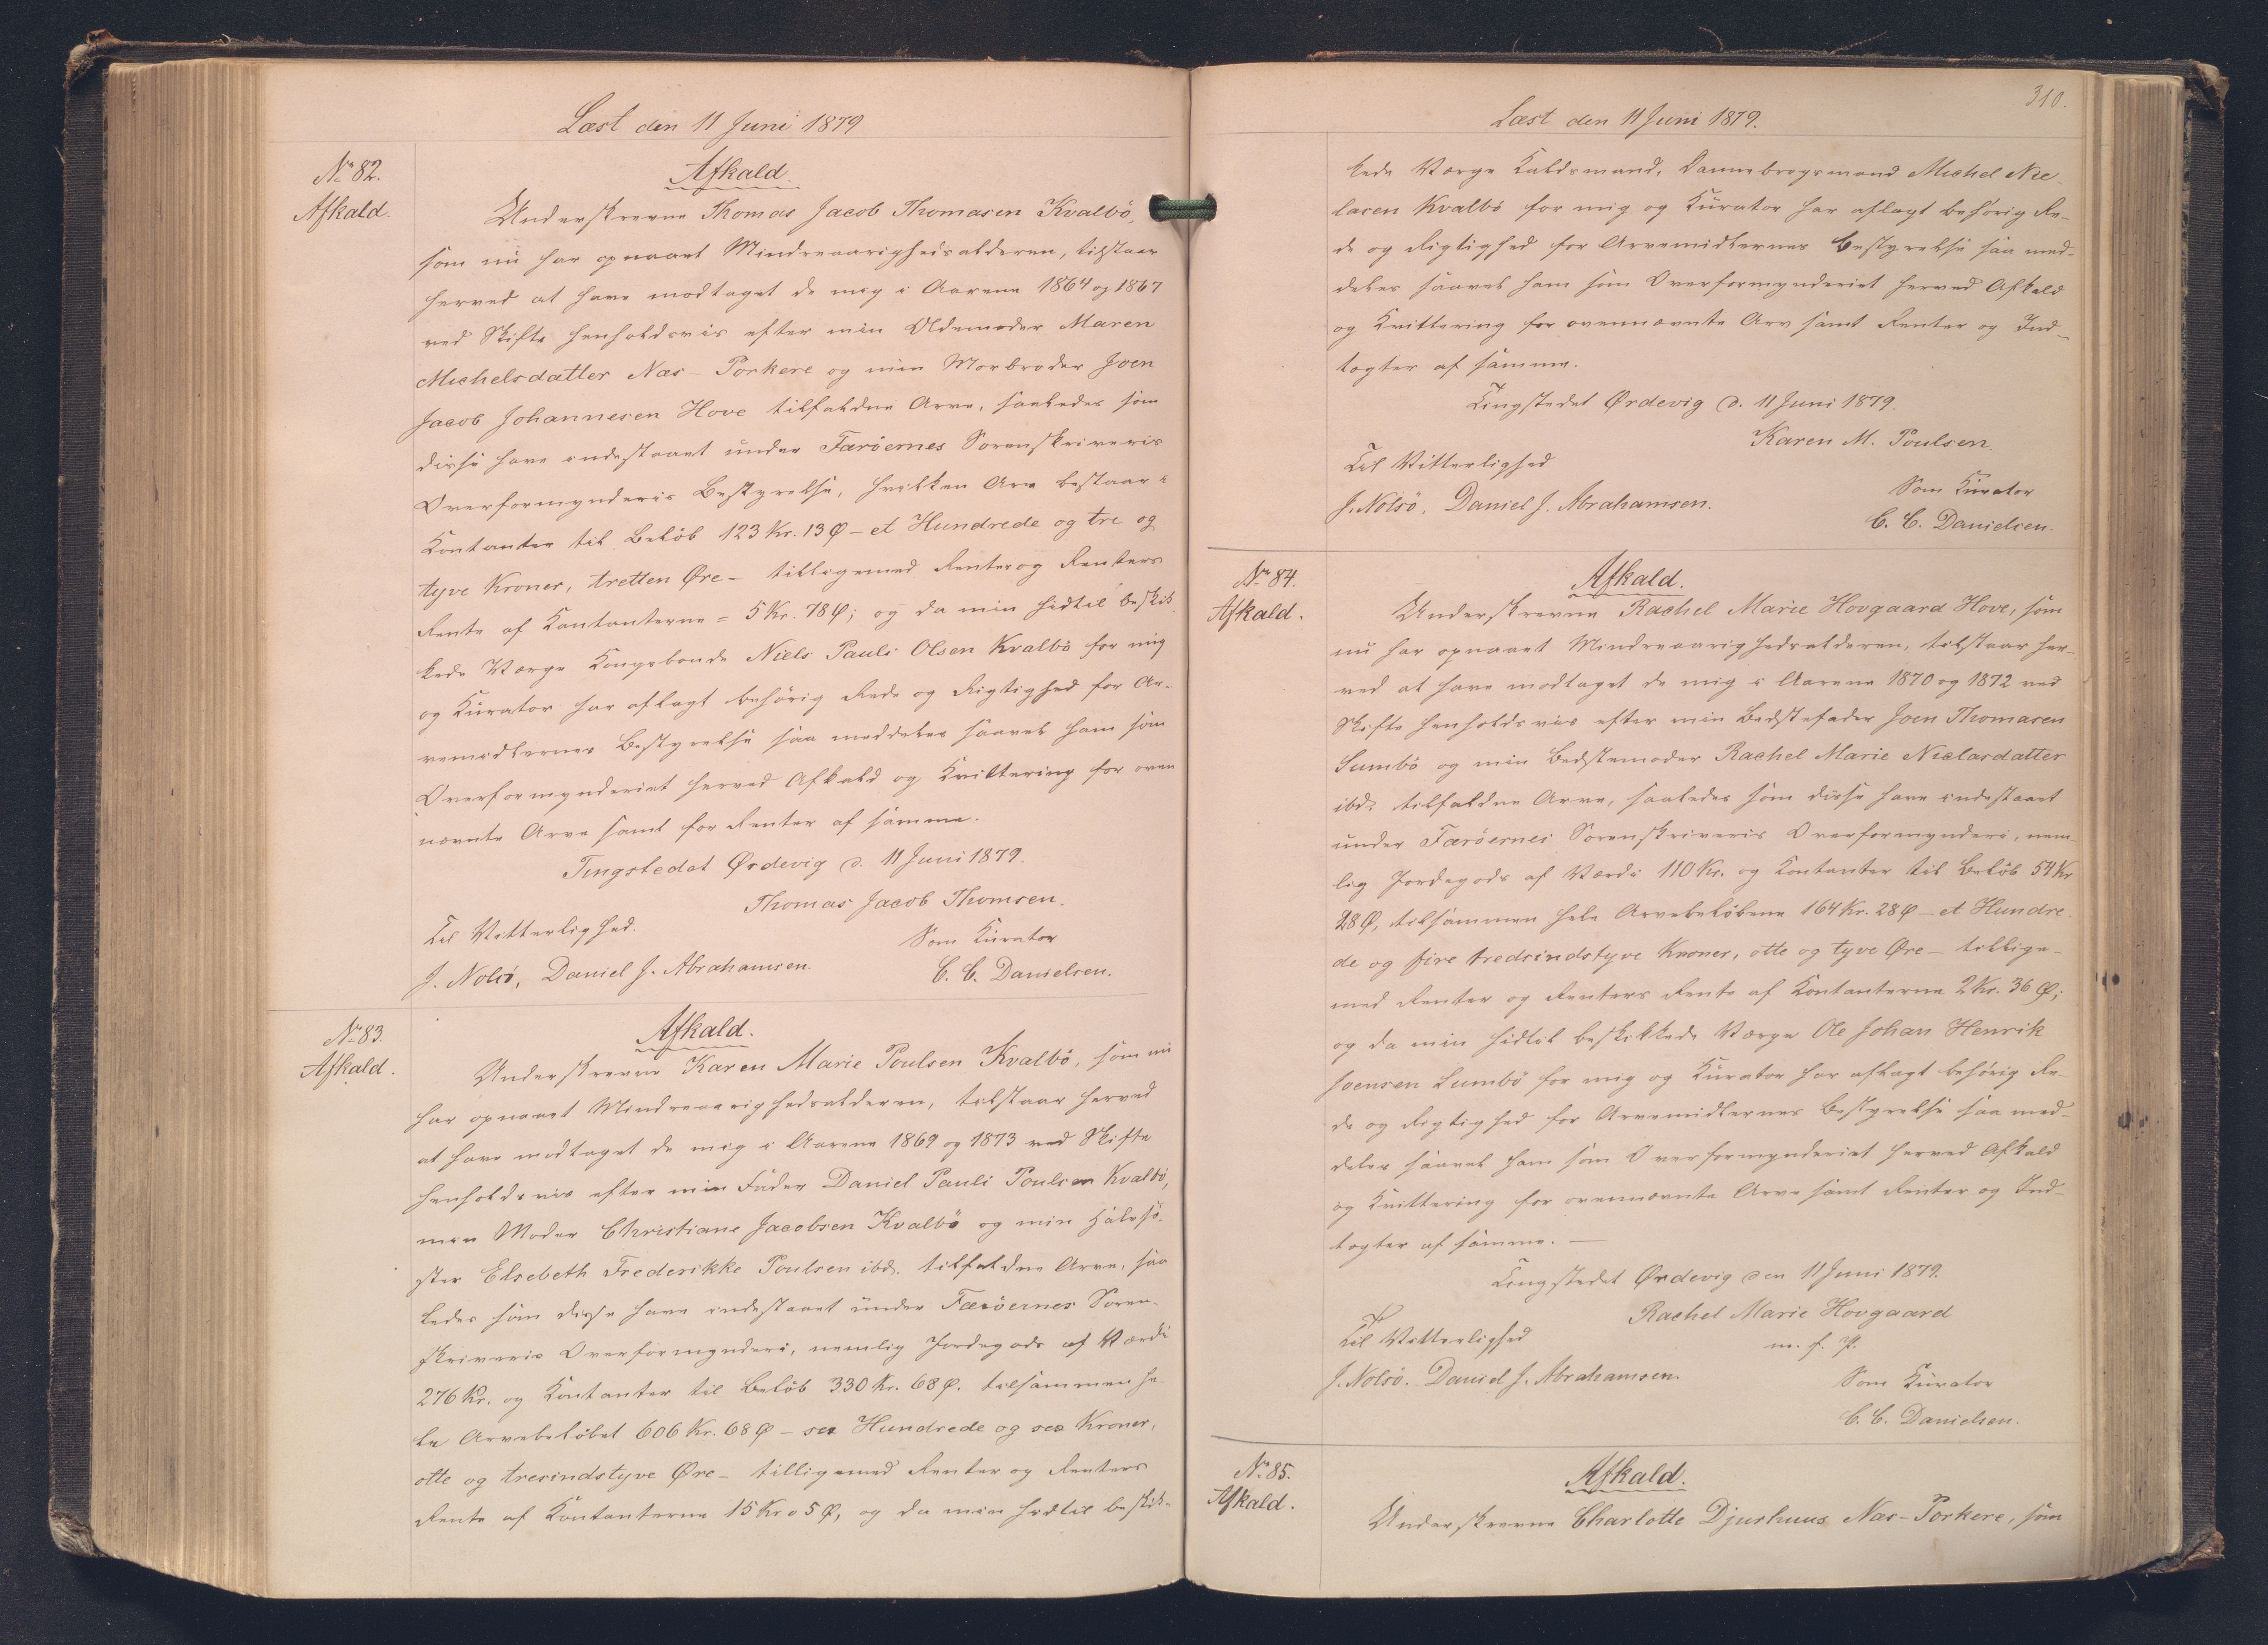 Læst den 11 Juni 1879
No 82.
Afkald.
Afkald.
Underskrevne Thomas Jacob Thomasen Kvalbö,
som nu har opnaaet Mindreaarighedsalderen, tilstaar
herved at have modtaget de mig i Aarene 1864 og 1867
ved Skifte henholdsvis efter min Oldemoder Maren
Michelsdatter Næs-Porkere og min Morbroder Joen
Jacob Johannesen Hove tilfaldne Arve, saaledes som
disse have indestaaet under Færöernes Sorenskriveris
Overformynderis Bestyrelse, hvilken Arv bestaar i
Contanter til Belöb 123 Kr. 13 Ø – et Hundrede og tre og
tyve Kroner, tretten Øre – tilligemed Renter og Renters
Rente af Contanterne = 5 Kr. 78 Ø; og da min hidtil beskik
kede Værge Kongsbonde Niels Pauli Olsen Kvalbö for mig
og Kurator har aflagt behörig Rede og Rigtighed for Ar-
vemidlernes Bestyrelse saa meddeles saavel ham som
Overformynderiet herved Afkald og Kvittering for oven
nævnte Arve samt for Renter af samme.
Tingstedet Ørdevig d. 11 Juni 1879.
Thomas Jacob Thomsen.
Til Vitterlighed.
Som Kurator
J. Nolsö, Daniel J. Abrahamsen.
C. C. Danielsen.
No 83.
Afkald.
Afkald.
Underskrevne Karen Marie Poulsen Kvalbö, som nu
har opnaaet Mindreaarighedsalderen, tilstaar herved
at have modtaget de mig i Aarene 1869 og 1873 ved Skifte
henholdsvis efter min Fader Daniel Pauli Poulsen Kvalbö,
min Moder Christiane Jacobsen Kvalbö og min Halvsö-
ster Elsebeth Frederikke Poulsen ibd. tilfaldne Arve, saa
ledes som disse have indestaaet under Færöernes Soren-
skriveris Overformynderi, nemlig Jordegods af Værdi
276 Kr. og Contanter til Belöb 330 Kr. 68 Ø. tilsammen he-
le Arvebelöbet 606 Kr. 68 Ø – sex Hundrede og sex Kroner,
otte og tresindstyve Øre – tilligemed Renter og Renters
Rente af Contanterne 15 Kr 05 Ø, og da min hidtil beskik-
310.
Læst den 11 Juni 1879.
kede Værge Kaldsmand, Dannebrogsmand Michel Nic
lasen Kvalbö for mig og Kurator har aflagt behörig Re-
de og Rigtighed for Arvemidlernes Bestyrelse saa med-
deles saavel ham som Overformynderiet herved Afkald
og Kvittering for ovennævnte Arv samt Renter og Ind-
tægter af samme.
Tingstedet Ørdevig d. 11 Juni 1879.
Karen M. Poulsen.
Til Vitterlighed
Som Kurator
J. Nolsö, Daniel J. Abrahamsen.
C. C. Danielsen.
No 84.
Afkald.
Afkald.
Underskrevne Rachel Marie Hovgaard Hove, som
nu har opnaaet Mindreaarighedsalderen, tilstaar her-
ved at have modtaget de mig i Aarene 1870 og 1872 ved
Skifte henholdsvis efter min Bedstefader Joen Thomasen
Sumbö og min Bedstemoder Rachel Marie Niclasdatter
ibd. tilfaldne Arve, saaledes som disse have indestaaet
under Færöernes Sorenskriveris Overformynderi, nem-
lig Jordegods af Værdi 110 Kr. og Contanter til Belöb 54 Kr
28 Ø, tilsammen hele Arvebelöbene 164 Kr. 28 Ø – et Hundre-
de og fire tredsindstyve Kroner, otte og tyve Øre – tillige-
med Renter og Renters Rente af Contanterne 2 Kr. 36 Ø;
og da min hidtil beskikkede Værge Ole Johan Henrik
Joensen Sumbö for mig og Kurator har aflagt behörig Re-
de og Rigtighed for Arvemidlernes Bestyrelse saa med-
deles saavel ham som Overformynderiet herved Afkald
og Kvittering for ovennævnte Arve samt Renter og Ind-
tægter af samme. –
Tingstedet Ørdevig den 11 Juni 1879.
Rachel Marie Hovgaard
Til Vitterlighed
m. f. P.
J. Nolsö. Daniel J. Abrahamsen.
Som Kurator
C. C. Danielsen.
No 85.
Afkald.
Afkald.
Underskrevne Charlotte Djurhuus Næs-Porkere, som